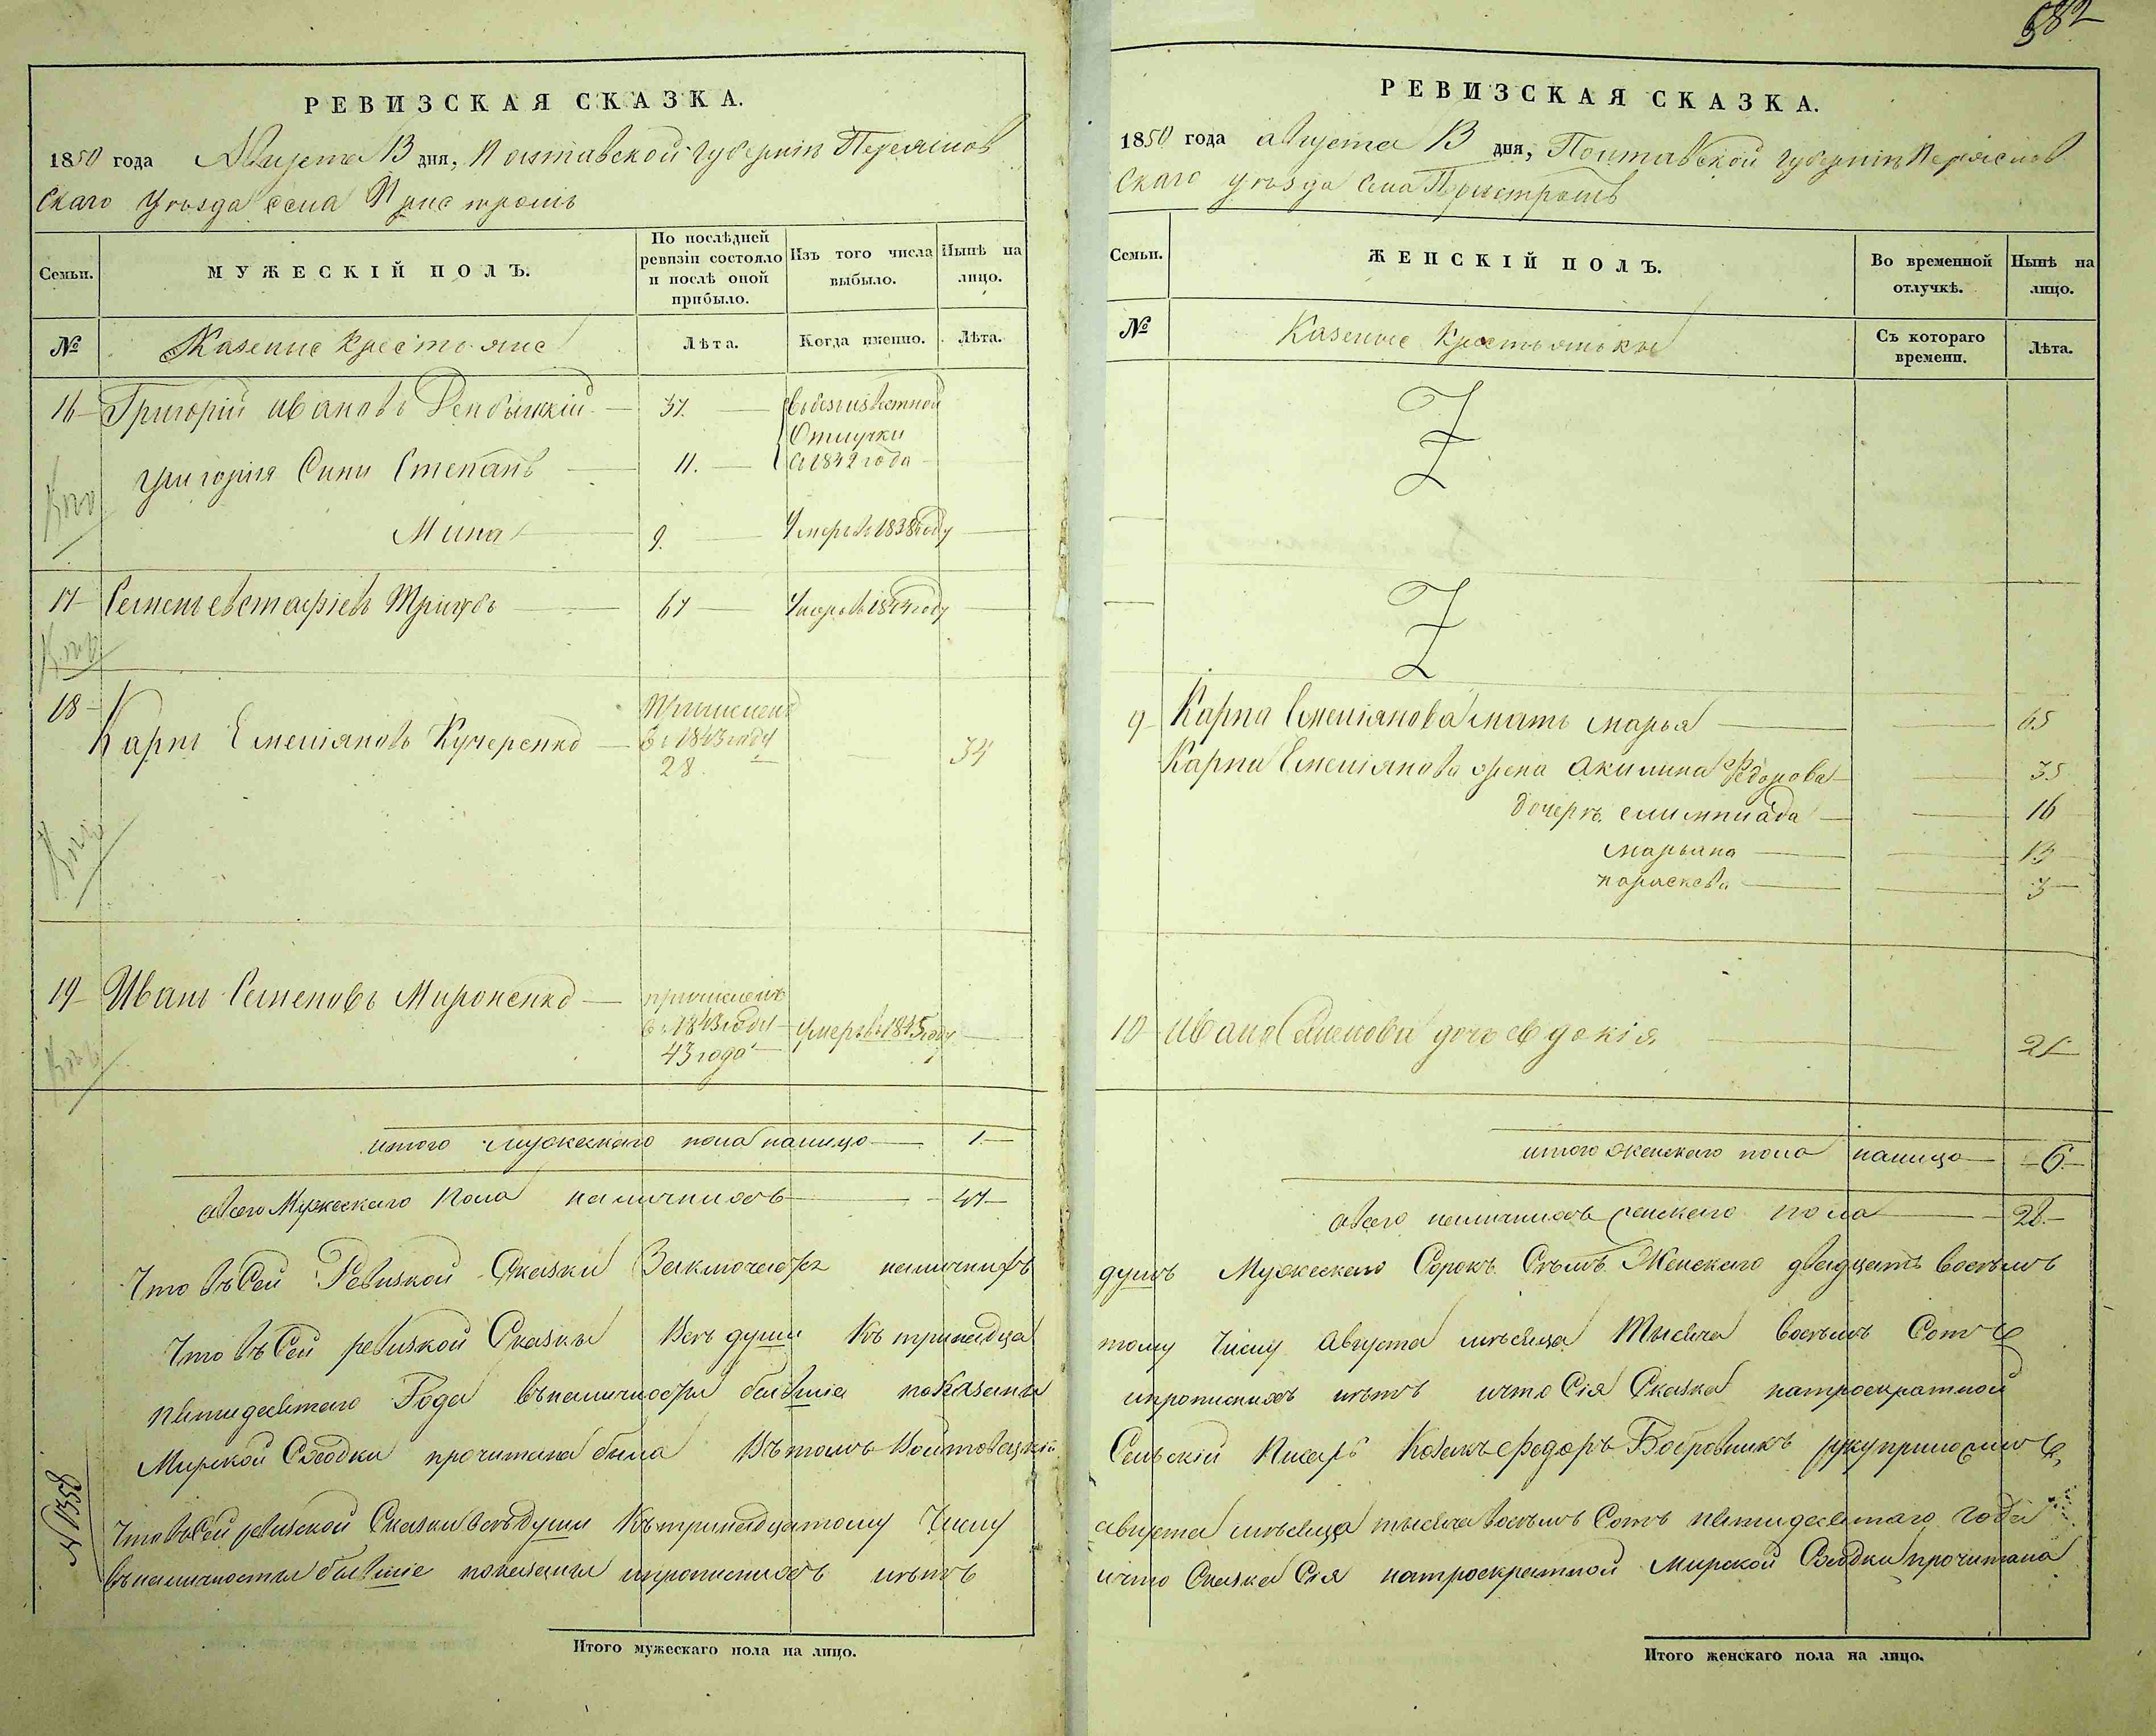 РЕВИЗСКАЯ СКАЗКА.
1850 года Августа 13 дня, Полтавской губерніи Переяслов
скаго уѣзда села Пристромъ
Семьи.
МУЖЕСКІЙ ПОЛЪ.
По послѣдней ревизіи состояло и послѣ оной прибыло.
Изъ того числа выбыло.
Нынѣ на лицо.
№
Казеные крестьяне
Лѣта.
Когда именно.
Лѣта.
16 Григорій Ивановъ 37.
въ безизвестной
Отлучки
Григорія Сини Степанъ 11. с 1842 года
Мина 9. Умеръ въ 1838 году
17 Семенъ евстафіевъ 67 Умеръ въ 1844 году
18 Карпъ Емеліяновъ Кучеренко
Причисленъ
въ 1843 году
28 34
19 Иванъ Семеновъ Мироненко
причисленъ
въ 1843 году Умеръ въ 1845 году
43 года
итого мужескаго пола налицо 1
Всего Мужескаго Пола наличнихъ 47
Что въ Сей Ревизкой Сказки Заключается наличнихъ
Что въ Сей ревизкой Сказки Всѣ души Къ тринадца
пятидесятаго Года въ наличности бывшіе показаны
Мирской Сходки прочитана была Въ томъ
Что въ Сей ревизской Сказки всѣ души Къ тринадцатому Числу
въ наличности бывшіе показаны ипрописнихъ нѣтъ
Итого мужескаго пола на лицо.
582
РЕВИЗСКАЯ СКАЗКА.
1850 года августа 13 дня, Полтавской губерніи Переяслов
скаго уѣзда села Пристромъ
Семьи.
ЖЕНСКІЙ ПОЛЪ.
Во временной отлучкѣ.
Нынѣ на лицо.
№
Казеные Крестьянки
Съ котораго времени.
Лѣта.
9 Карпа Емеліянова мать марья 65
Карпа Емеліянова жена Акилина Федорова 35
дочерѣ елимпиада 16
марьяна 13
параскева 3
10 Ивана Семенова дочь евдокія 21
итого женскаго пола налицо 6
Всего наличнихъ женскаго пола 28
душъ Мужескаго Сорокъ Сѣмъ Женскаго двадцать восѣмъ
тому Числу Августа мѣсяца Тысяча восѣмъ Сотъ
ипрописнихъ нѣтъ ичто Сія Сказка натроекратной
Сельскій Писарь Козакъ Федоръ Бобровникъ руку приложилъ
августа мѣсяца тысяча восѣмъ Сотъ пятидесятаго года
ичто Сказка Сія натроекратной Мирской Сходки прочитана